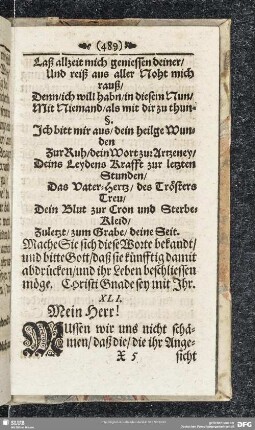 (489)
Laß allzeit mich geniessen deiner/
Und reiß aus aller Noht mich
rauß/
Denn/ich will habn/in diesem Nun/
Mit Niemand/als mit dir zu thun.
Ich bitt mir aus/dein heilge Wun-
den
Zur Ruh/dein Wort zur Artzeney/
Deins Leydens Krafft zur letzten
Stunden/
Das Vater-Hertz/des Trösters
Treu/
Dein Blut zur Cron und Sterbe-
Kleid/
Zuletzt/zum Grabe/deine Seit.
Mache Sie sich diese Worte bekandt/
und bitte Gott/daß sie künfftig damit
abdrücken/und ihr Leben beschliessen
möge. Christi Gnade sey mit Ihr.
XLI.
Mein Herr!
Müssen wir uns nicht schä-
men/daß die/die ihr Ange-
X 5 sicht
SLUB
DFG